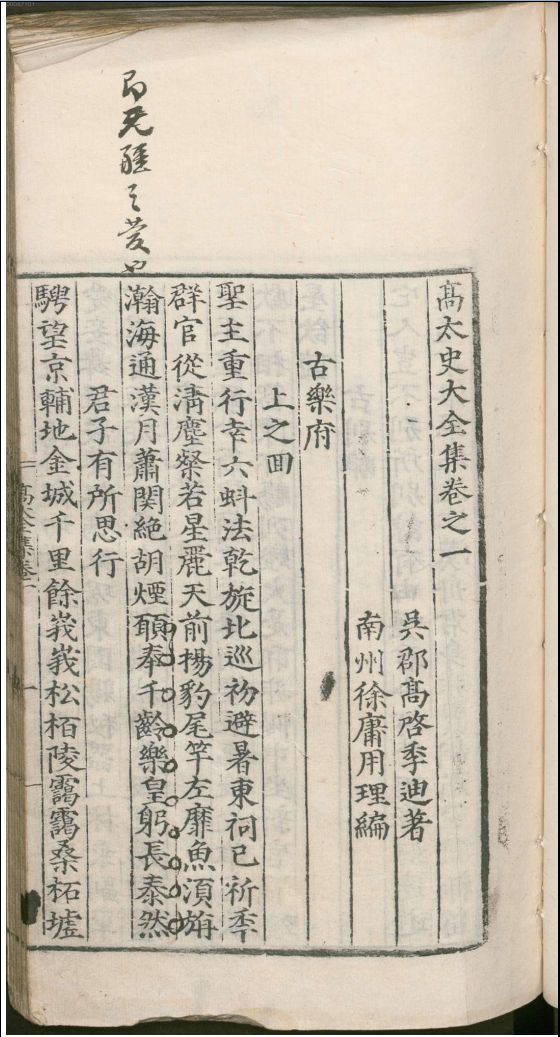 髙太史大全集卷之一
吳郡髙啓季迪著
南州徐庸用理編
古樂府
上之囬
聖主重行幸六蚪法乾旋北巡初避暑東祠已祈秊
群官從淸塵粲若星麗天前揚豹尾竿左靡魚湏旃
即无疆之
瀚海通漢月蕭関絶胡煙願奉千齡樂皇躬長泰然
君子有所思行
騁望京輔地金城千里餘峩峩松栢陵靄靄桑柘墟